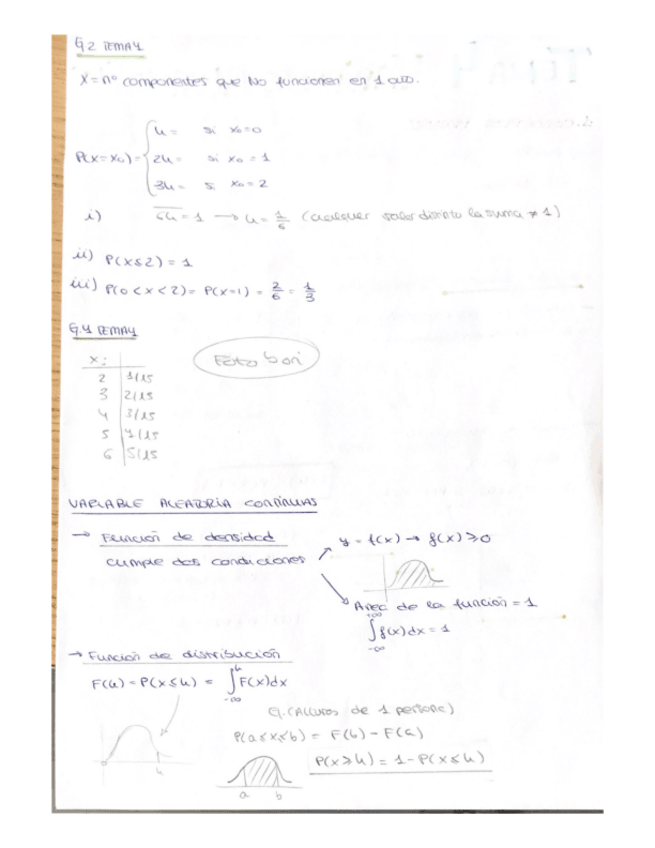 Ej 2 TEMA 4
X = nº componentes que No funcionen en 1 año.
P(X=X₀) = { k = si x₀=0
2k = si x₀ = 1
3k = si x₀ = 2
i) 6k = 1 → k = 1/6 (cualquier valor distinto la suma ≠ 1)
ii) P(X≤2) = 1
iii) P(0 < X < 2) = P(X=1) = 2/6 = 1/3
Ej. 4 TEMA 4
Xi
2 | 1/15
3 | 2/15
4 | 3/15
5 | 4/15
6 | 5/15
VARIABLE ALEATORIA CONTINUAS
→ Función de densidad
cumple dos condiciones
y = f(x) → f(x) ≥ 0
Area de la función = 1
∫ f(x) dx = 1
+∞
-∞
→ Función de distribución
F(k) = P(X ≤ k) = ∫ F(x) dx
k
-∞
k
Ej. (Alturas de 1 persona)
P(a≤X≤b) = F(b) - F(a)
P(X≥k) = 1 - P(X≤k)
a b